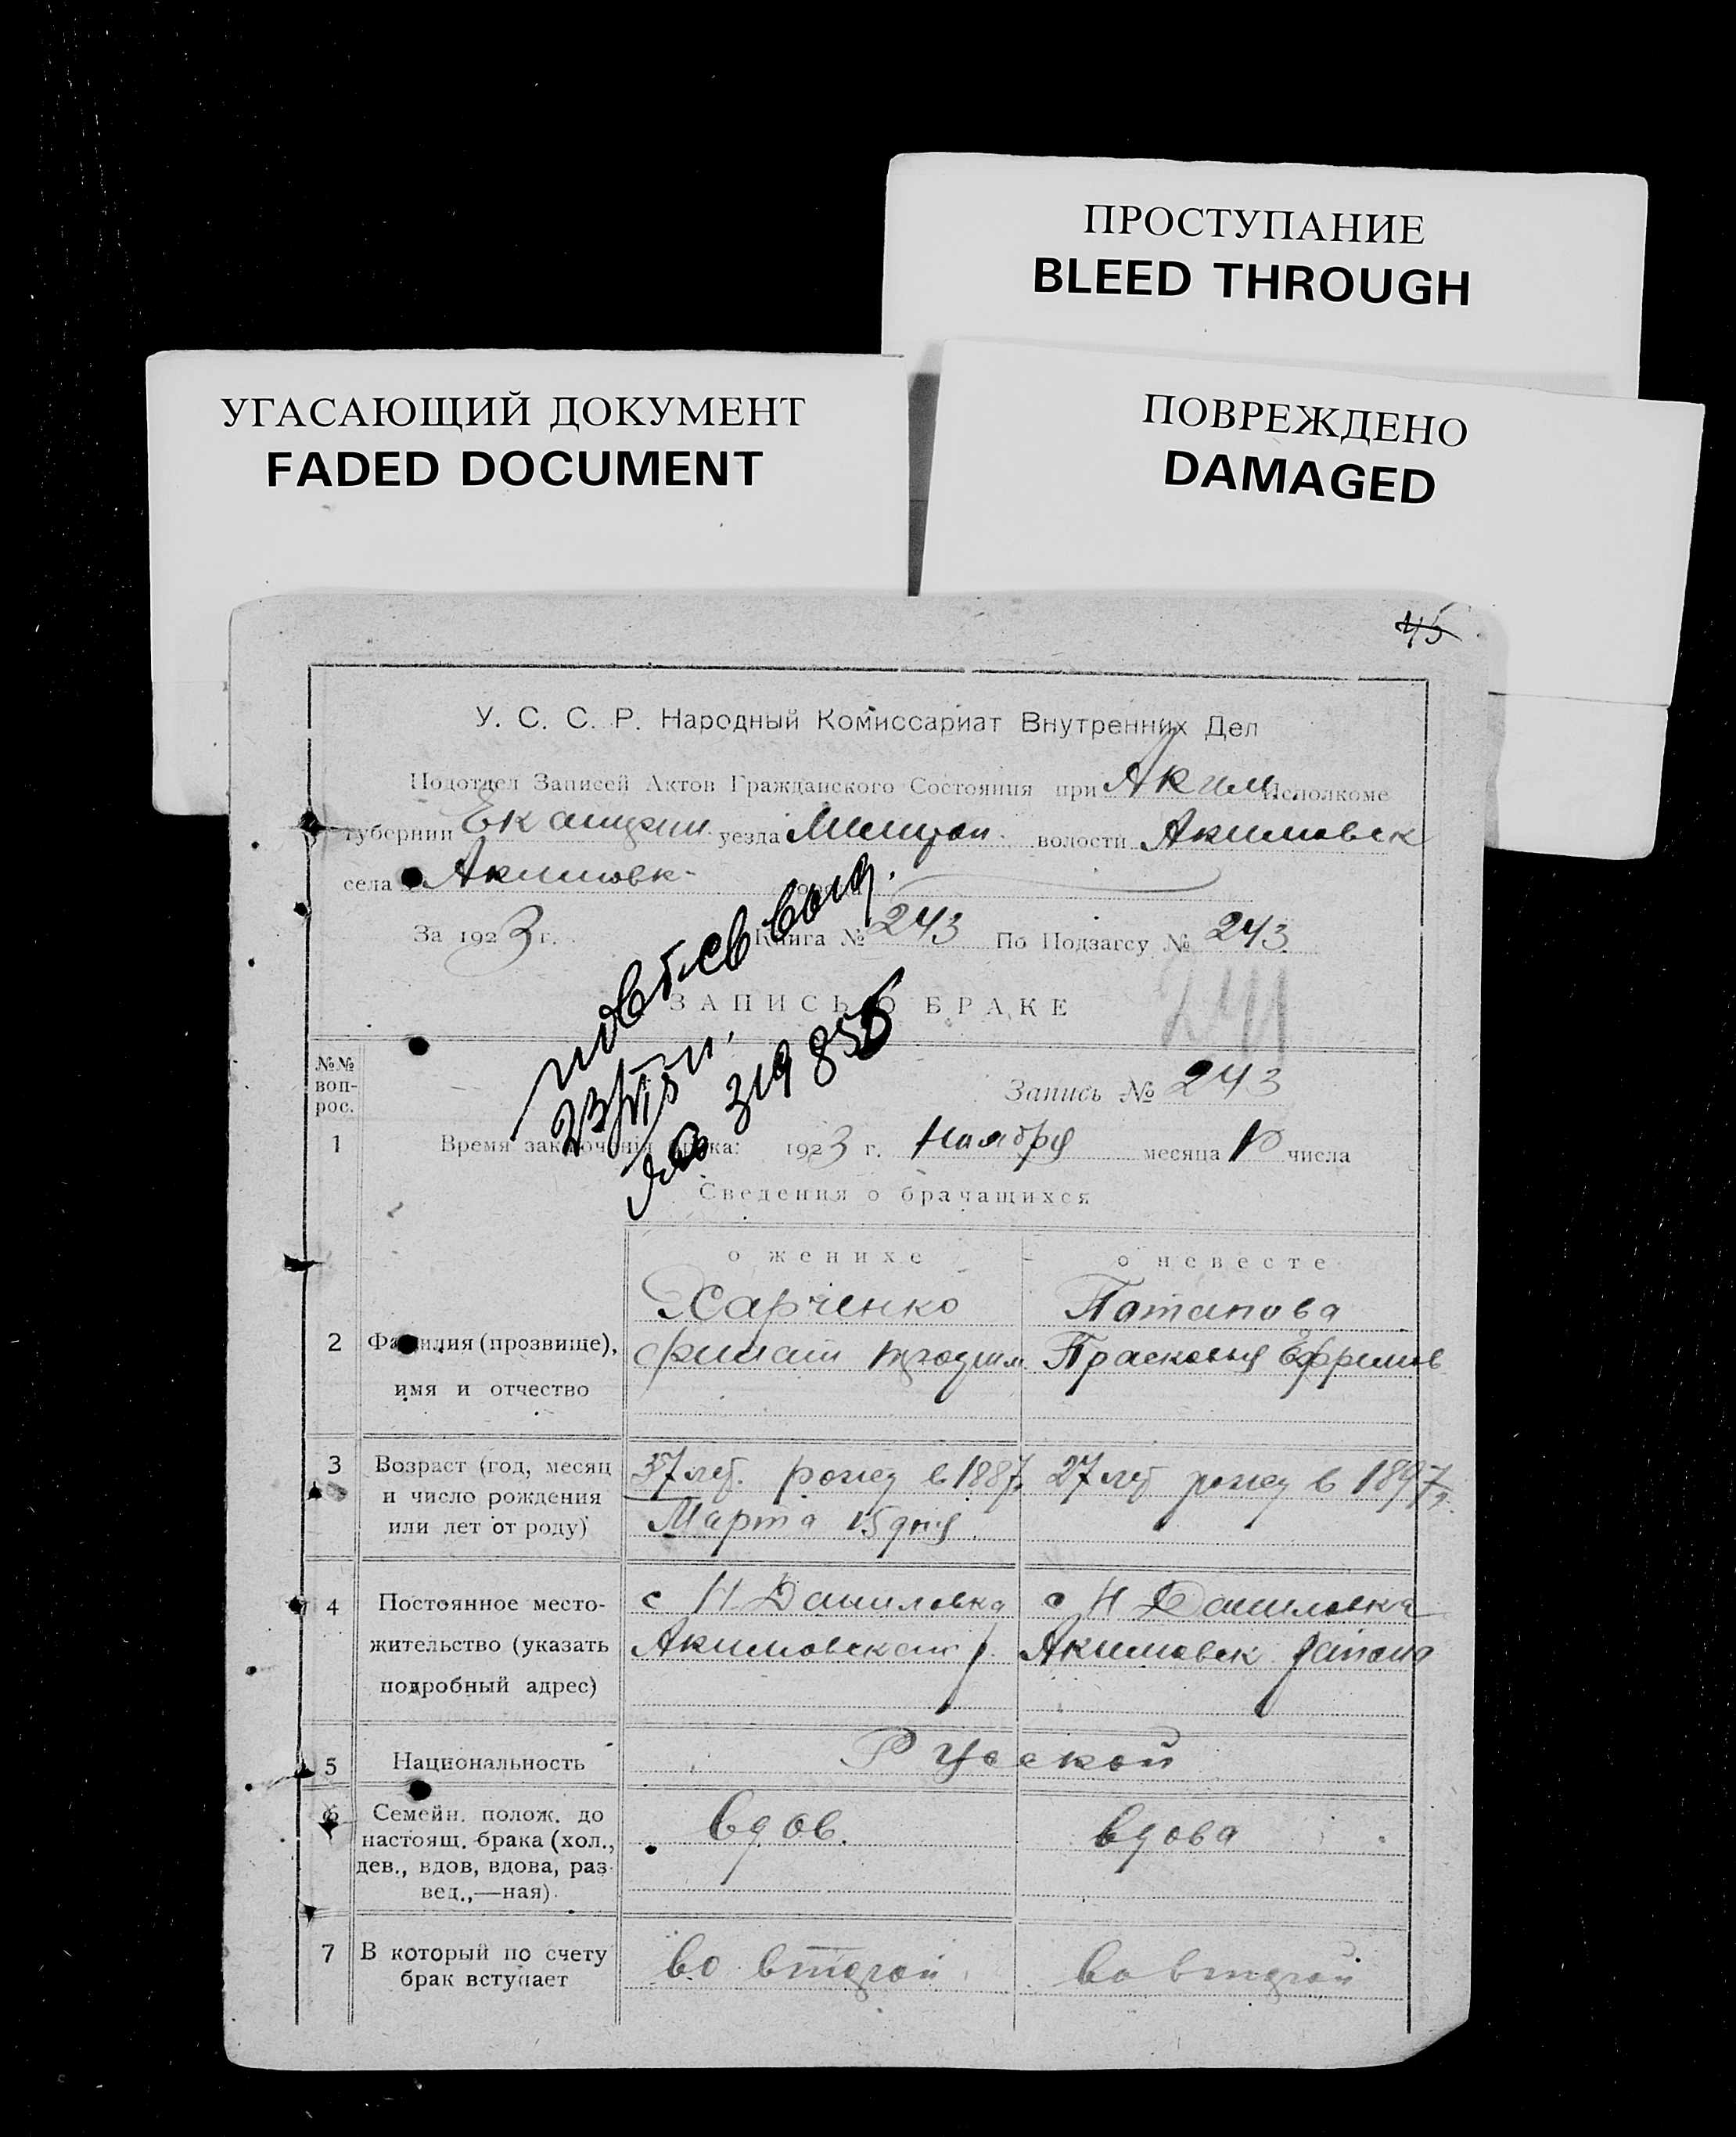 ПРОСТУПАНИЕ
BLEED THROUGH
УГАСАЮЩИЙ ДОКУМЕНТ
FADED DOCUMENT
ПОВРЕЖДЕНО
DAMAGED
45
У. С. С. Р. Народный Комиссариат Внутренних Дел
Подотдел Записей Актов Гражданского Состояния при Аким. Исполкоме
губернии уезда волости Акимовск
села Акимовк-
За 1923 г. Книга № 243 По Подзагсу № 243
ЗАПИСЬ О БРАКЕ
241
№№ вопрос.
Запись № 243
319856
1 Время заключения брака: 1923 г. Ноября месяца 10 числа
Сведения о брачащихся
о женихе о невесте
Харченко Потапова
2 Фамилия (прозвище), имя и отчество
Прасковья Ефремов
3 Возраст (год, месяц и число рождения или лет от роду)
37 лет. рожд в 1887. 27 лет рожд в 1897г.
Марта 15 дня
4 Постоянное местожительство (указать подробный адрес)
с Н Даниловка с Н Даниловка
Акимовского р. Акимовск района
5 Национальность Руской
6 Семейн. полож. до настоящ. брака (хол., дев., вдов, вдова, развед.,—ная)
вдов. вдова
7 В который по счету брак вступает
во второй во второй